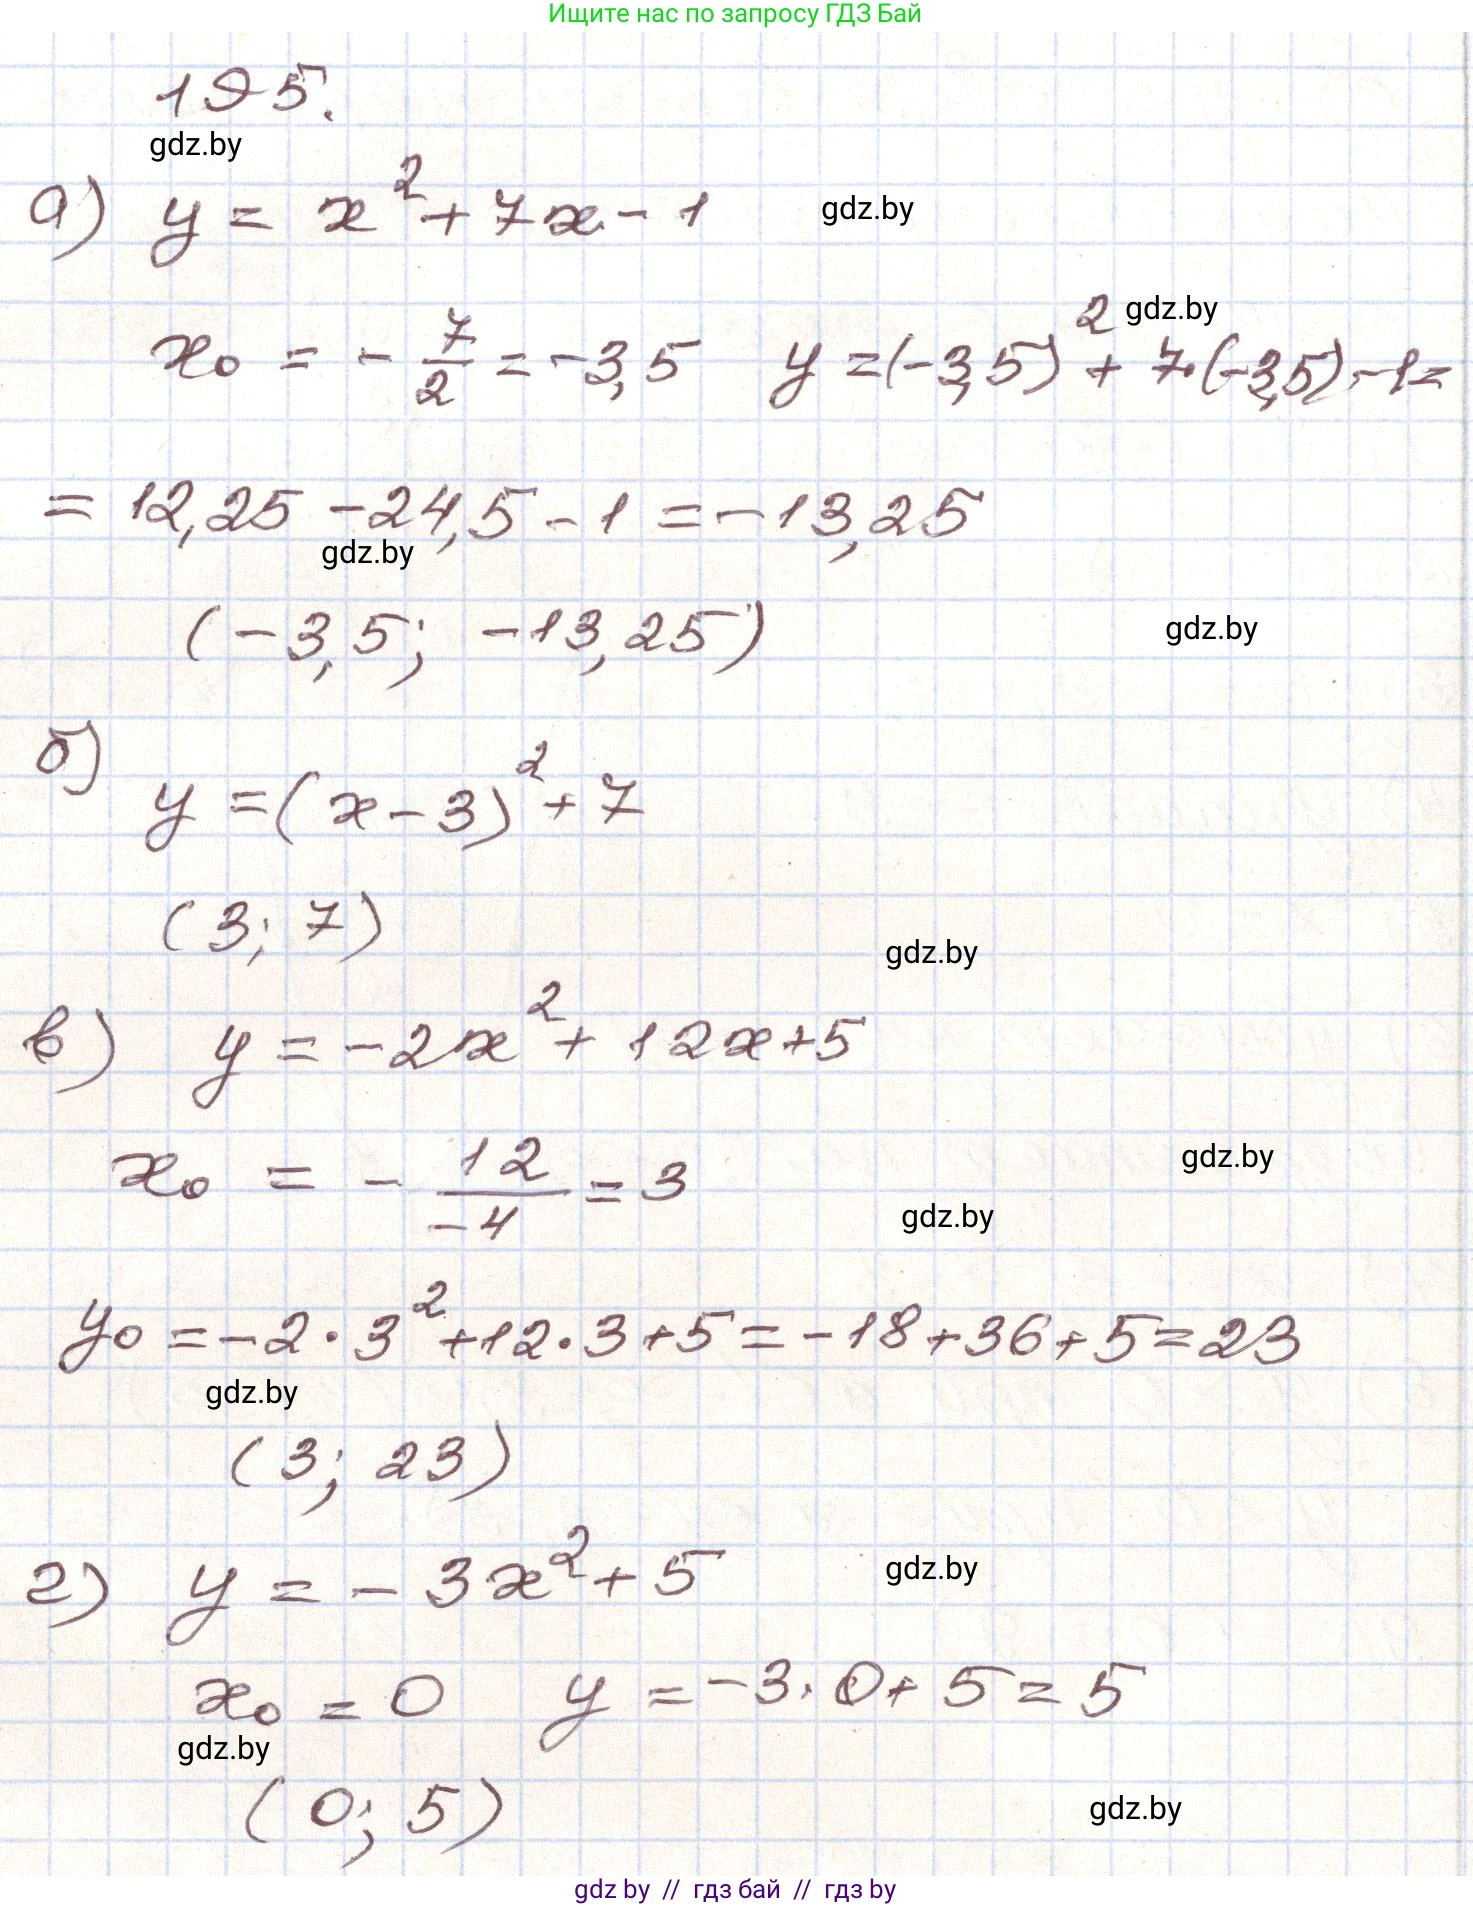 Ищите нас по запросу ГДЗ Бай
195.
gdz.by
а) y = x² + 7x - 1 gdz.by
gdz.by
x₀ = - 7/2 = -3,5 y = (-3,5)² + 7·(-3,5) - 1 =
= 12,25 - 24,5 - 1 = -13,25
gdz.by
(-3,5; -13,25) gdz.by
б) y = (x - 3)² + 7
(3; 7)
gdz.by
в) y = -2x² + 12x + 5
x₀ = - 12/-4 = 3 gdz.by
gdz.by
y₀ = -2·3² + 12·3 + 5 = -18 + 36 + 5 = 23
gdz.by
(3; 23)
г) y = -3x² + 5 gdz.by
x₀ = 0 y = -3·0 + 5 = 5
gdz.by
(0; 5) gdz.by
gdz by // гдз бай // гдз by